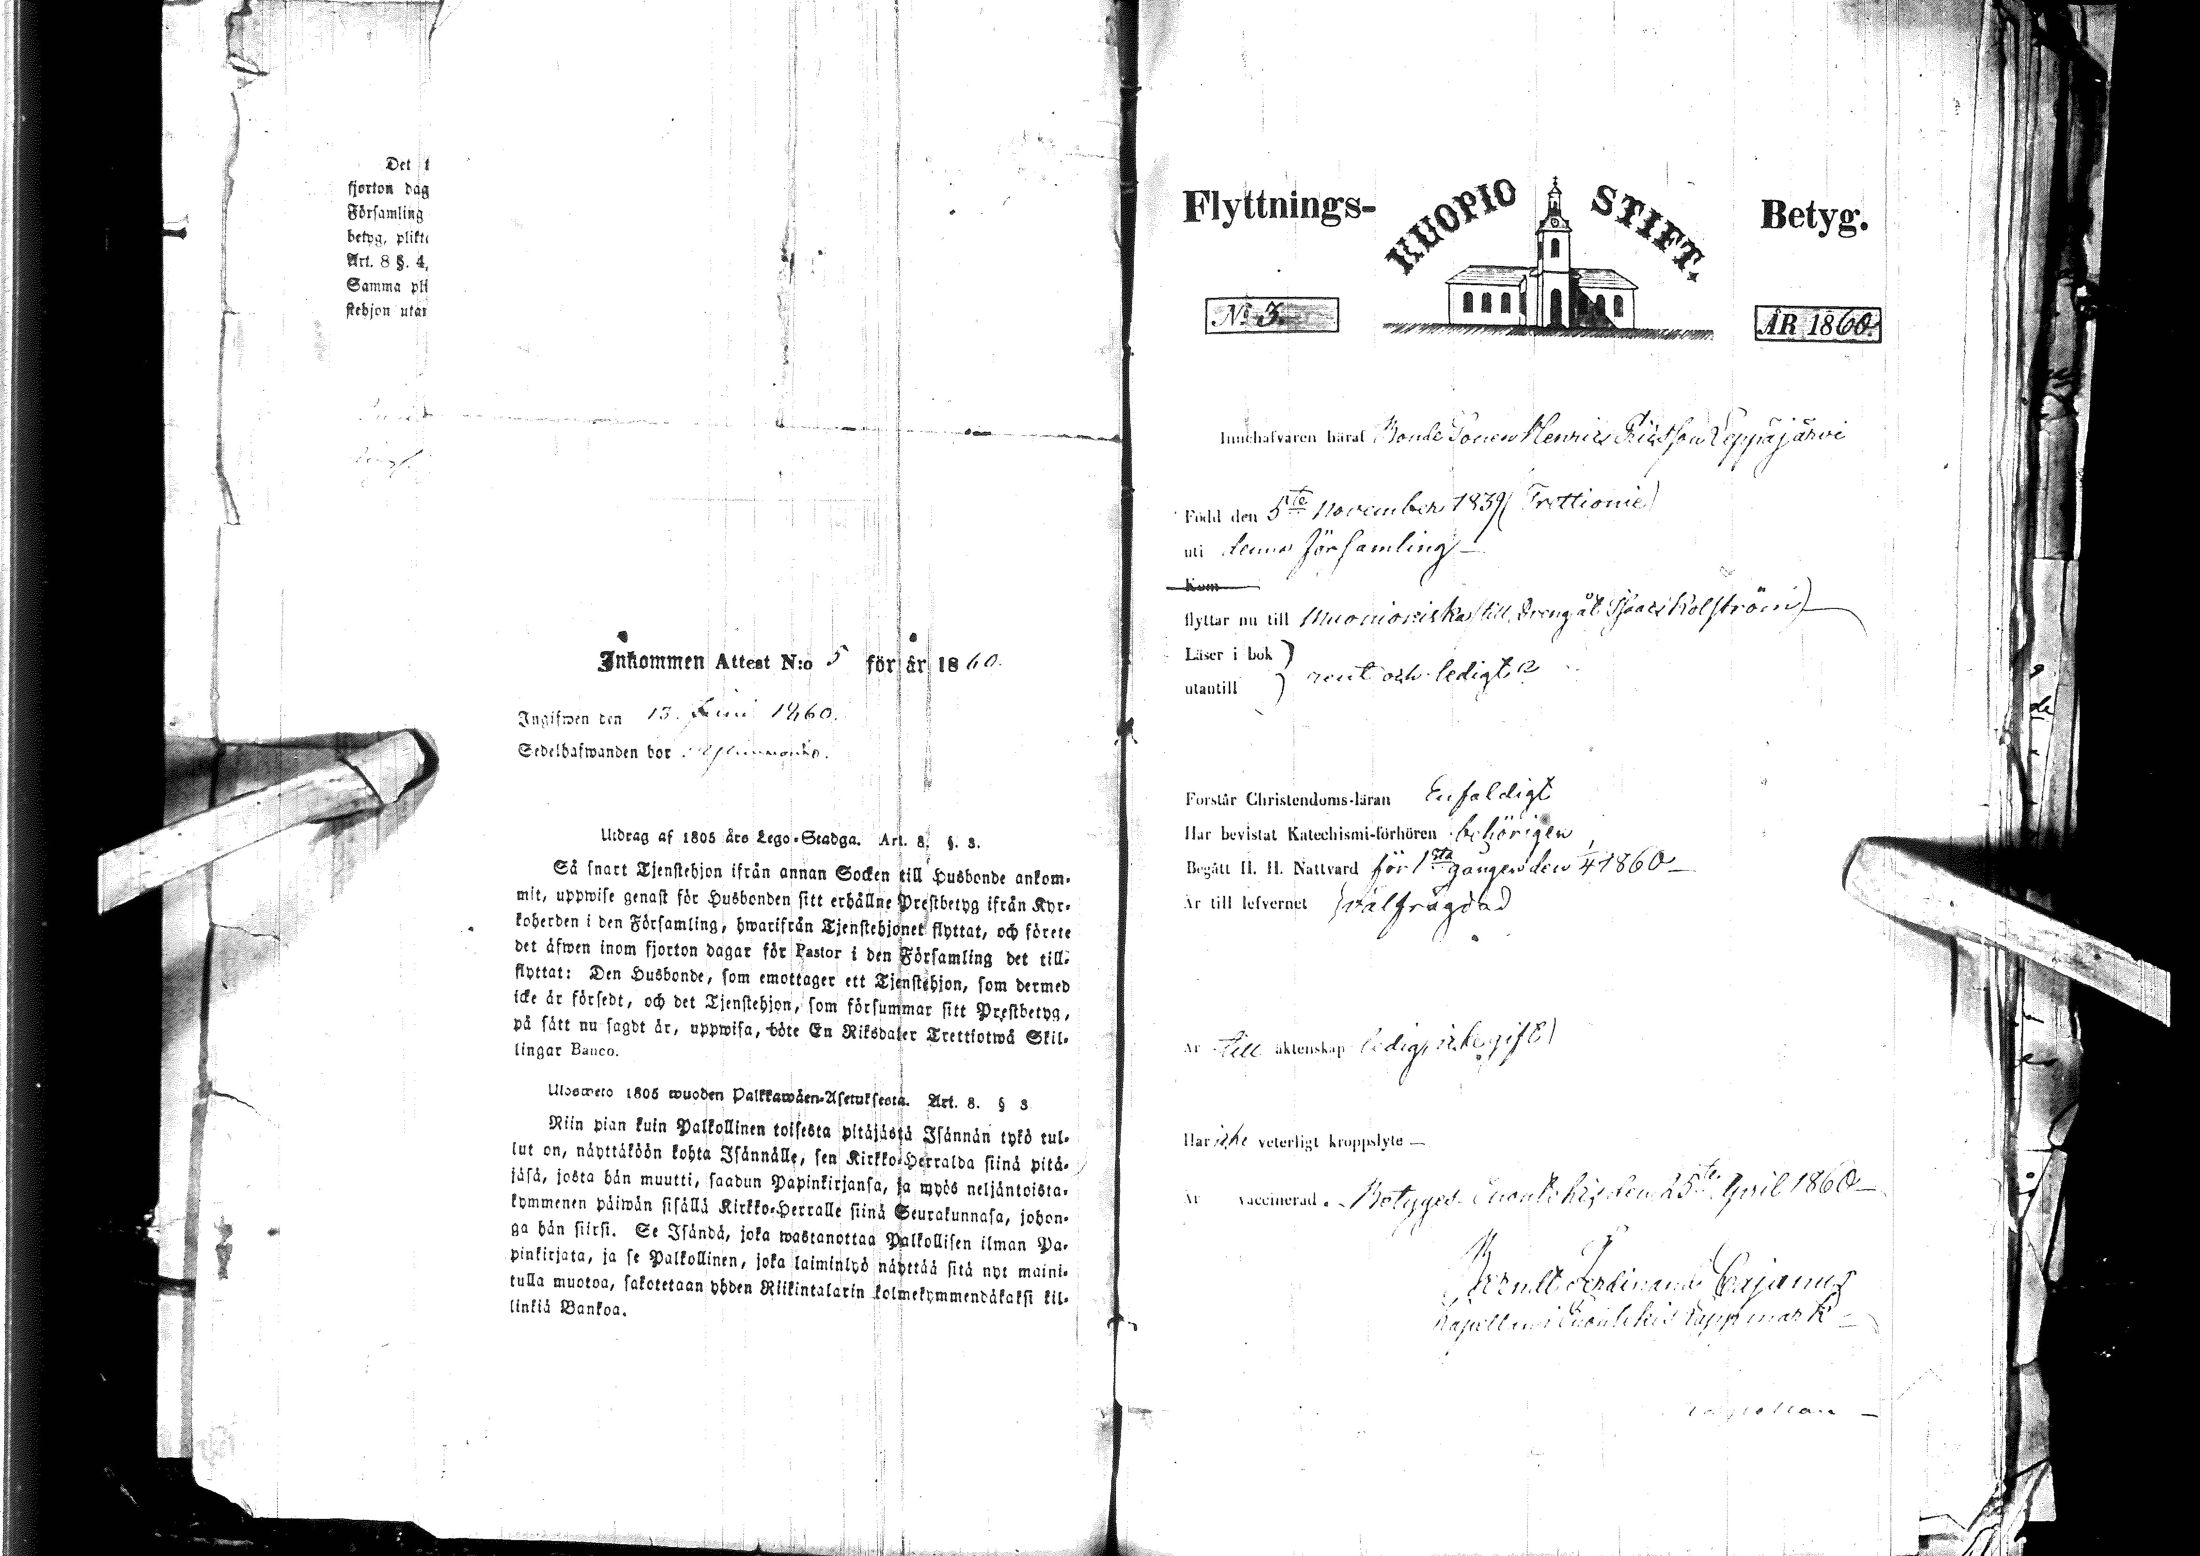 Det t
fjorton dag
Församling
betyg, plikt
Art. 8 §. 4,
Samma pli
stehjon utan
Inkommen Attest N:o 5 för år 1860.
Ingifwen den 13. Juni 1860.
Sedelhafwanden bor
Utdrag af 1805 års Lego-Stadga. Art. 8. §. 3.
Så snart Tjenstehjon ifrån annan Socken till Husbonde ankom-
mit, uppwise genast för Husbonden sitt erhållne Prestbetyg ifrån Kyr-
koherden i den Församling, hwarifrån Tjenstehjonet flyttat, och förete
det äfwen inom fjorton dagar för Pastor i den Församling det till-
flyttat: Den Husbonde, som emottager ett Tjenstehjon, som dermed
icke är försedt, och det Tjenstehjon, som försummar sitt Prestbetyg,
på sätt nu sagdt är, uppwisa, böte En Riksdaler Trettiotwå Skil-
lingar Banco.
Ulosweto 1805 wuoden Palkkawäen-Asetuksesta. Art. 8. § 3
Niin pian kuin Palkollinen toisesta pitäjästä Isännän tykö tul-
lut on, näyttäköön kohta Isännälle, sen Kirkko-Herralda siinä pitä-
jäsä, josta hän muutti, saadun Papinkirjansa, ja myös neljäntoista-
kymmenen päiwän sisällä Kirkko-Herralle siinä Seurakunnasa, johon-
ga hän siirsi. Se Isändä, joka wastanottaa Palkollisen ilman Pa-
pinkirjata, ja se Palkollinen, joka laiminlyö näyttää sitä nyt maini-
tulla muotoa, sakotetaan yhden Riikintalarin kolmekymmendäkaksi kil-
linkiä Bankoa.
Flyttnings- KUOPIO STIFT. Betyg.
No 3. ÅR 1860.
Innehafvaren häraf Bonde Sonen Henric Leppäjärvi
Född den 5te November 1839 (Trettionie)
uti denna församling –
Kom
flyttar nu till Muonioniska (till dreng åt Isaac Kolström)
Läser i bok
utantill } rent och ledigt
Förstår Christendoms-läran Enfaldigt
Har bevistat Katechismi-förhören behörigen
Begått H. H. Nattvard för 1sta gången den 1/4 1860 –
Är till lefvernet välfrägdad
Är till äktenskap ledig, icke gift
Har icke veterligt kroppslyte –
Är vaccinerad. Betygas Enontekis den 25te April 1860 –
Berndt Ferdinand Cajanus
Kapellan i Enontekis Lappmark –